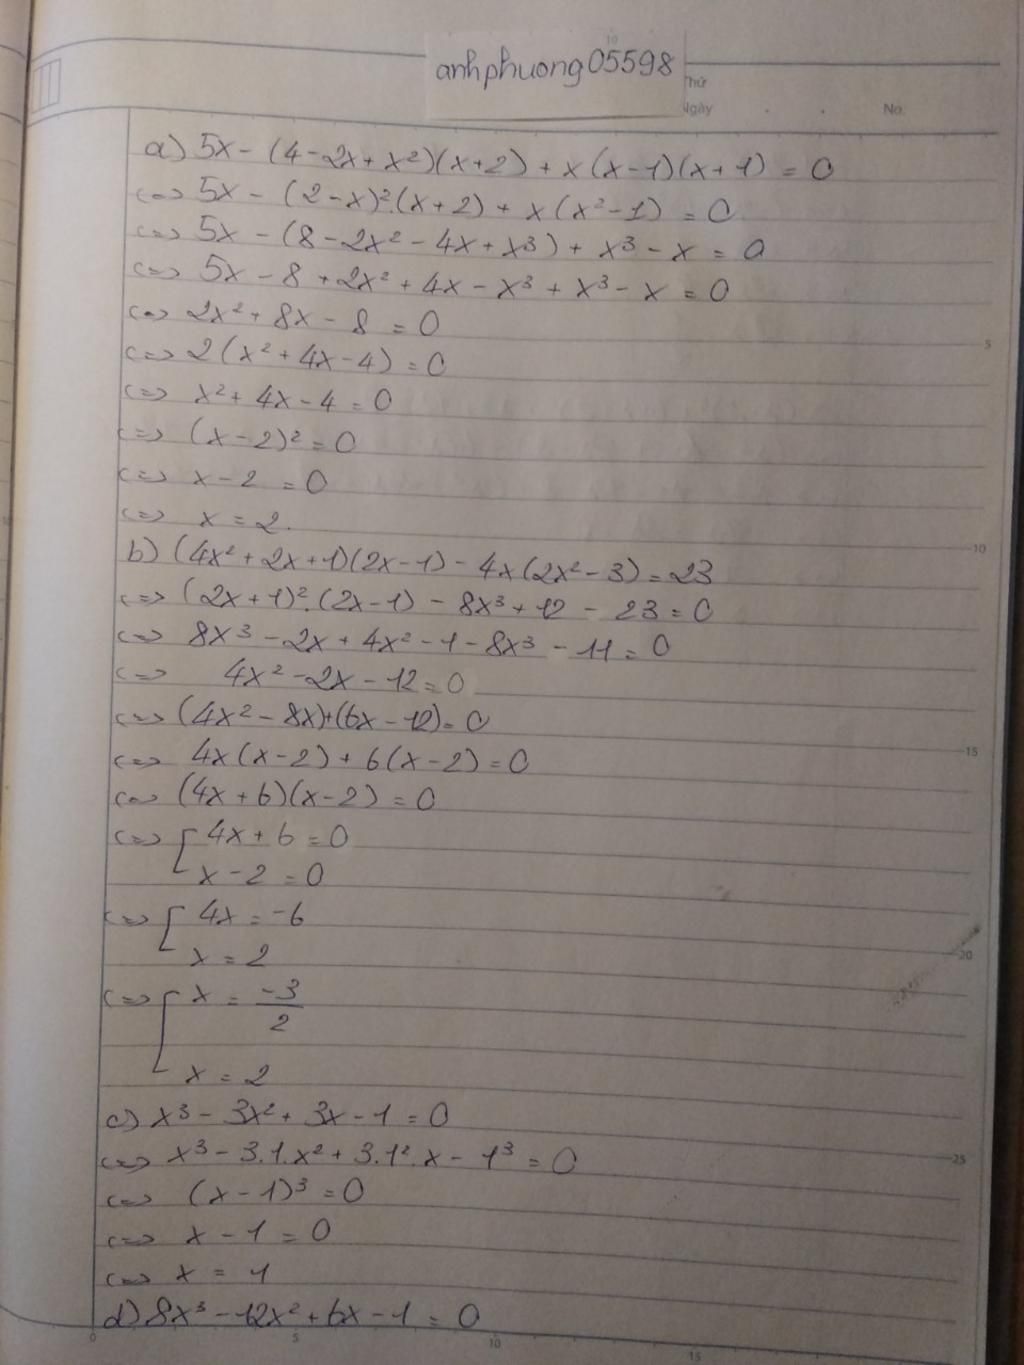 anhphuong05598
Thứ
Ngày
No.
a) 5x - (4 - 2x + x²)(x + 2) + x(x - 1)(x + 1) = 0
<=> 5x - (2 - x)².(x + 2) + x(x² - 1) = 0
<=> 5x - (8 - 2x² - 4x + x³) + x³ - x = 0
<=> 5x - 8 + 2x² + 4x - x³ + x³ - x = 0
<=> 2x² + 8x - 8 = 0
<=> 2(x² + 4x - 4) = 0
<=> x² + 4x - 4 = 0
<=> (x - 2)² = 0
<=> x - 2 = 0
<=> x = 2.
b) (4x² + 2x + 1)(2x - 1) - 4x(2x² - 3) = 23
<=> (2x + 1)².(2x - 1) - 8x³ + 12 - 23 = 0
<=> 8x³ - 2x + 4x² - 1 - 8x³ - 11 = 0
<=> 4x² - 2x - 12 = 0
<=> (4x² - 8x) + (6x - 12) = 0
<=> 4x(x - 2) + 6(x - 2) = 0
<=> (4x + 6)(x - 2) = 0
<=> [ 4x + 6 = 0
x - 2 = 0
<=> [ 4x = -6
x = 2
<=> [ x = -3/2
x = 2
c) x³ - 3x² + 3x - 1 = 0
<=> x³ - 3.1.x² + 3.1².x - 1³ = 0
<=> (x - 1)³ = 0
<=> x - 1 = 0
<=> x = 1
d) 8x³ - 12x² + 6x - 1 = 0